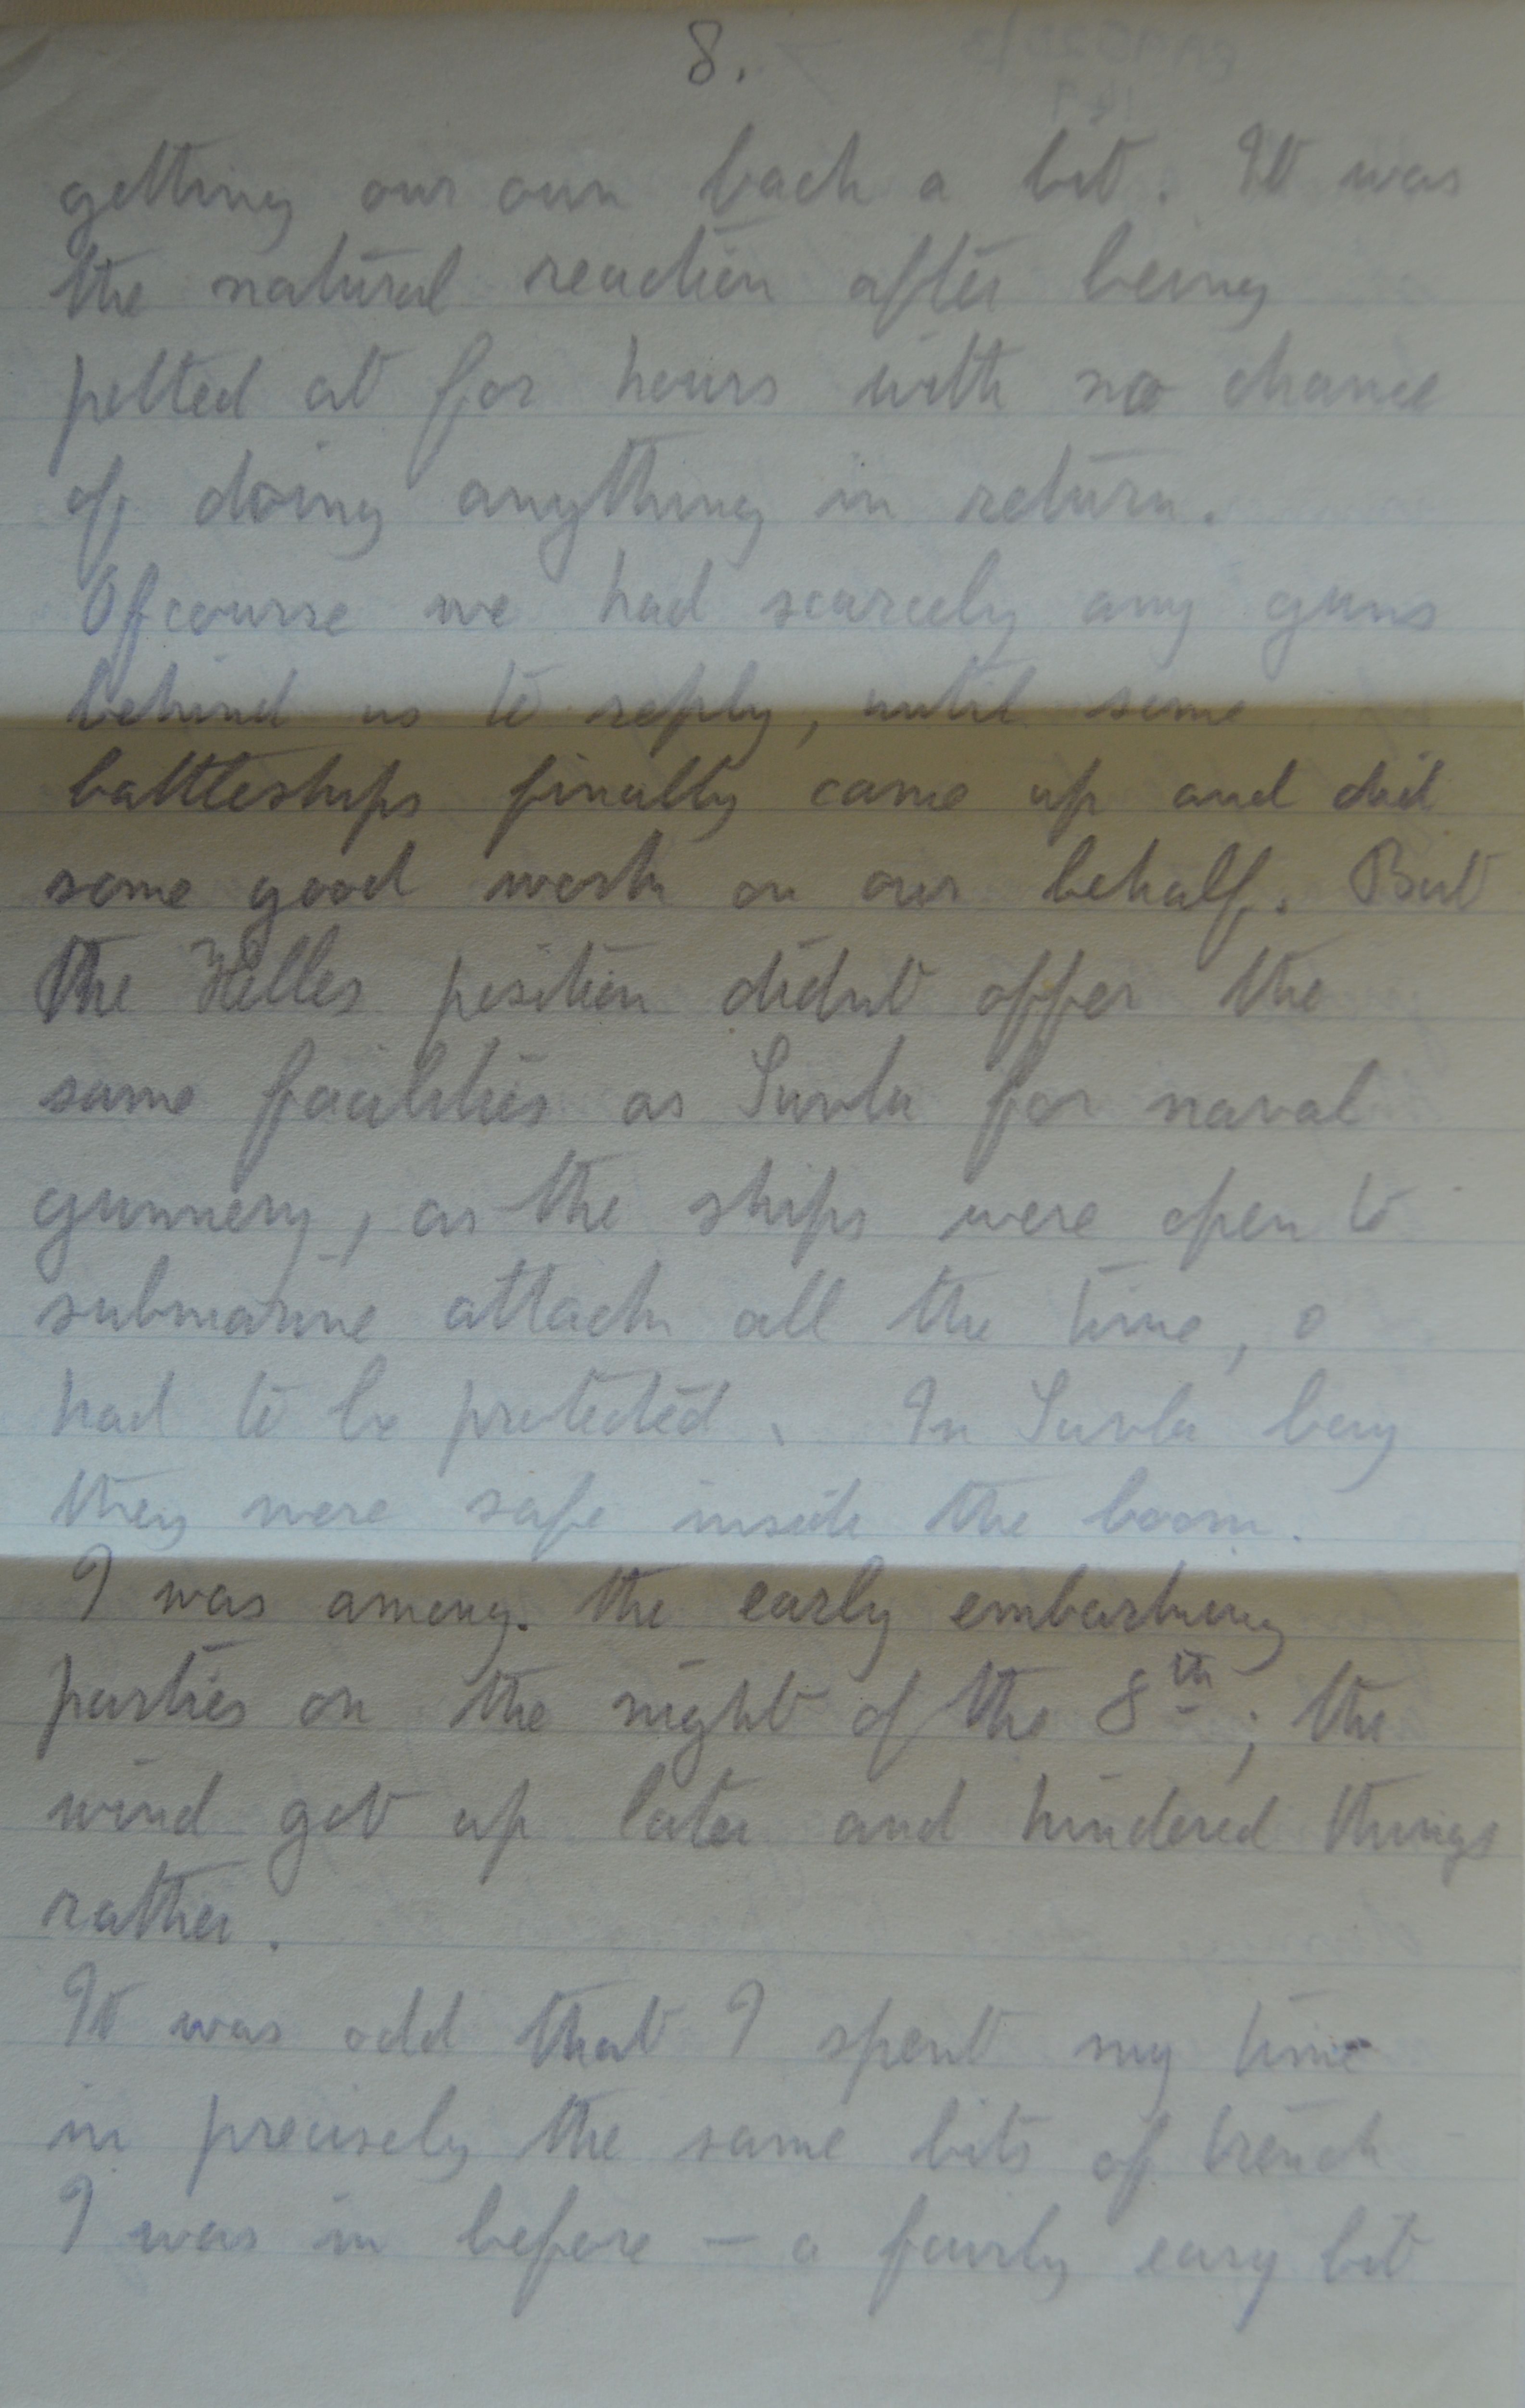 8.
getting our own back a bit. It was
the natural reaction after being
pelted at for hours with no chance
of doing anything in return.
Ofcourse we had scarcely any guns
behind us to reply, until some
battleships finally came up and did
some good work on our behalf. But
the Helles position didnt offer the
same facilities as Suvla for naval
gunnery, as the ships were open to
submarine attack all the time, &
had to be protected. In Suvla bay
they were safe inside the boom.
I was among. the early embarking
parties on the night of the 8th; the
wind got up later and hindered things
rather.
It was odd that I spent my time
in precisely the same bits of trench
I was in before — a fairly easy bit